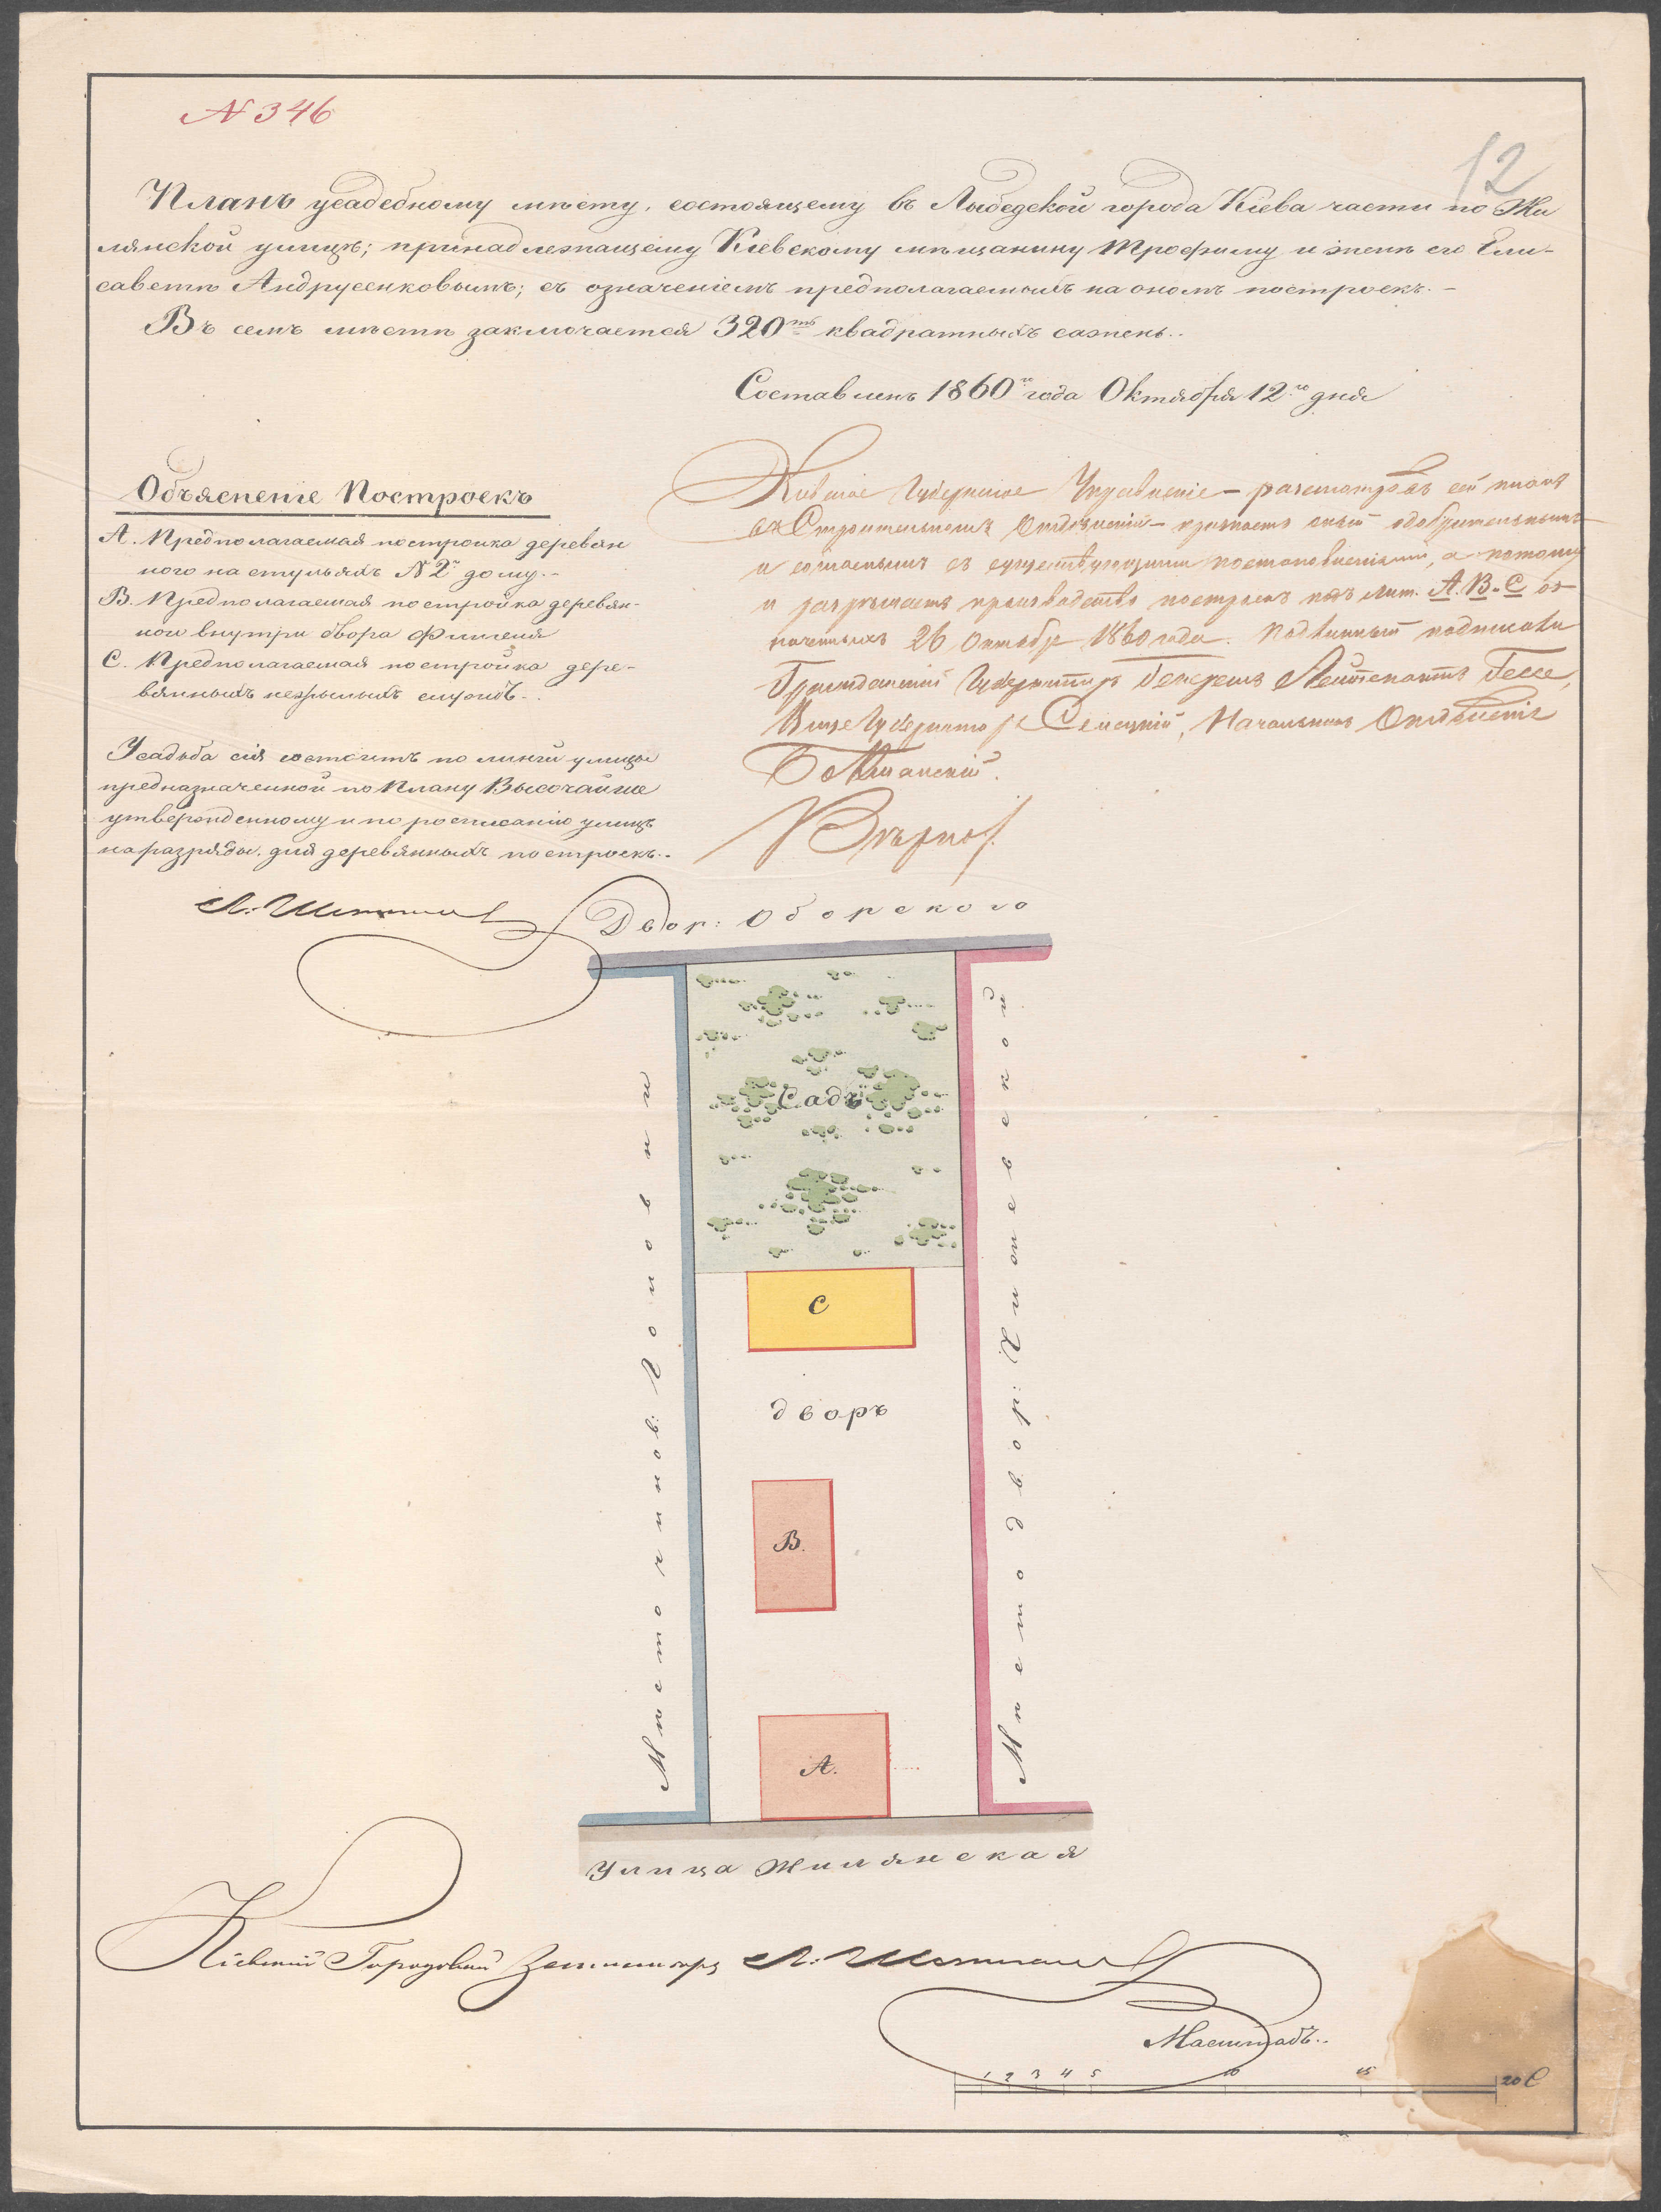 N 346
12
Планъ усадебному мѣсту, состоящему въ Лыбедской города Кіева части по Жи
лянской улицѣ; принадлежащему Кіевскому мѣщанину Трофиму и женѣ его Ели-
саветѣ Андрусенковымъ; съ означеніемъ предполагаемыхъ на ономъ построекъ.-
Въ семъ мѣстѣ заключается 320ть квадратныхъ сажень..
Составленъ 1860го года Октября 12го дня
Объясненіе Построекъ
А. Предполагаемая постройка деревян
ного на стульяхъ N 2й дому.-
В. Предполагаемая постройка деревян-
ного внутри двора флигеля
С. Предполагаемая постройка дере-
вянныхъ нежилыхъ службъ..
Усадьба сія состоитъ по линіи улицы
предназначенной по Плану Высочайше
утвержденному и по росписанію улицъ
на разряды, для деревянныхъ построекъ..
Кіевское Губернское Управленіе - разсмотрѣвъ сей планъ
въ Строительномъ Отдѣленіи - признаетъ оный одобрительнымъ
и согласнымъ съ существующими постановленіями, а потому
и разрѣшаетъ производство построекъ подъ лит. А. В. С оз-
наченныхъ 26 Октября 1860 года. Подлинный подписали
Гражданскій Губернаторъ Генералъ Лейтенантъ Гессе,
Вице Губернаторъ Селецкій, Начальникъ Отдѣленія
Вѣрно
Двор: Оборского
Садъ
С
дворъ
В.
А.
Мѣсто чинов: Головни
Мѣсто двор: Липевской
Улица Жилянская
Кіевскій Городовой Землемѣръ
Масштабъ..
1 2 3 4 5 10 15 20 С